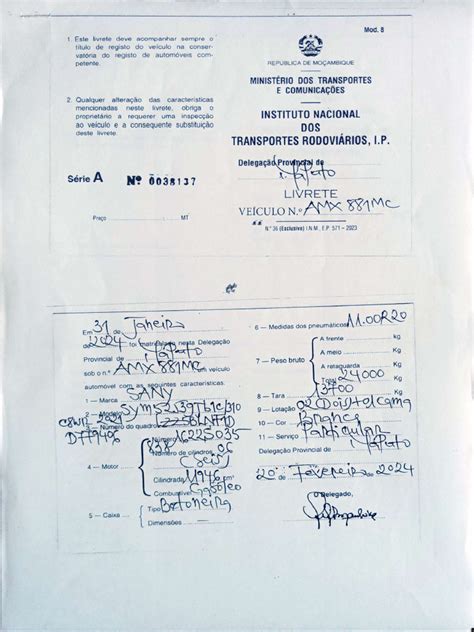 Mod. 8
1. Este livrete deve acompanhar sempre o
título de registo do veículo na conser-
vatória do registo de automóveis com-
petente.
2. Qualquer alteração das características
mencionadas neste livrete, obriga o
proprietário a requerer uma inspecção
ao veículo e a consequente substituição
deste livrete.
Série A Nº 0038137
Preço MT
REPÚBLICA DE MOÇAMBIQUE
MINISTÉRIO DOS TRANSPORTES
E COMUNICAÇÕES
INSTITUTO NACIONAL
DOS
TRANSPORTES RODOVIÁRIOS, I.P.
Delegação Provincial de
LIVRETE
VEÍCULO N.º AMX 881MC
N.º 36 (Exclusivo) I.N.M., E.P. 571 – 2023
Em 31 de Janeiro
2024 foi matriculado nesta Delegação
Provincial de Maputo
sob o n.º AMX 881MC um veículo
automóvel com as seguintes características:
1 — Marca SANY
2 — Modelo
3 — Número do quadro
4 — Motor
Número de cilindros 06
Cilindrada cm³
Combustível Gasóleo
5 — Caixa Tipo Betoneira
Dimensões
6 — Medidas dos pneumáticos 11.00R20
7 — Peso bruto
A frente kg
A meio kg
A retaguarda kg
Total 24000 kg
8 — Tara 3700 kg
9 — Lotação 02 Dois
10 — Cor Branca
11 — Serviço Particular
Delegação Provincial de Maputo
20 de Fevereiro de 2024
O Delegado,